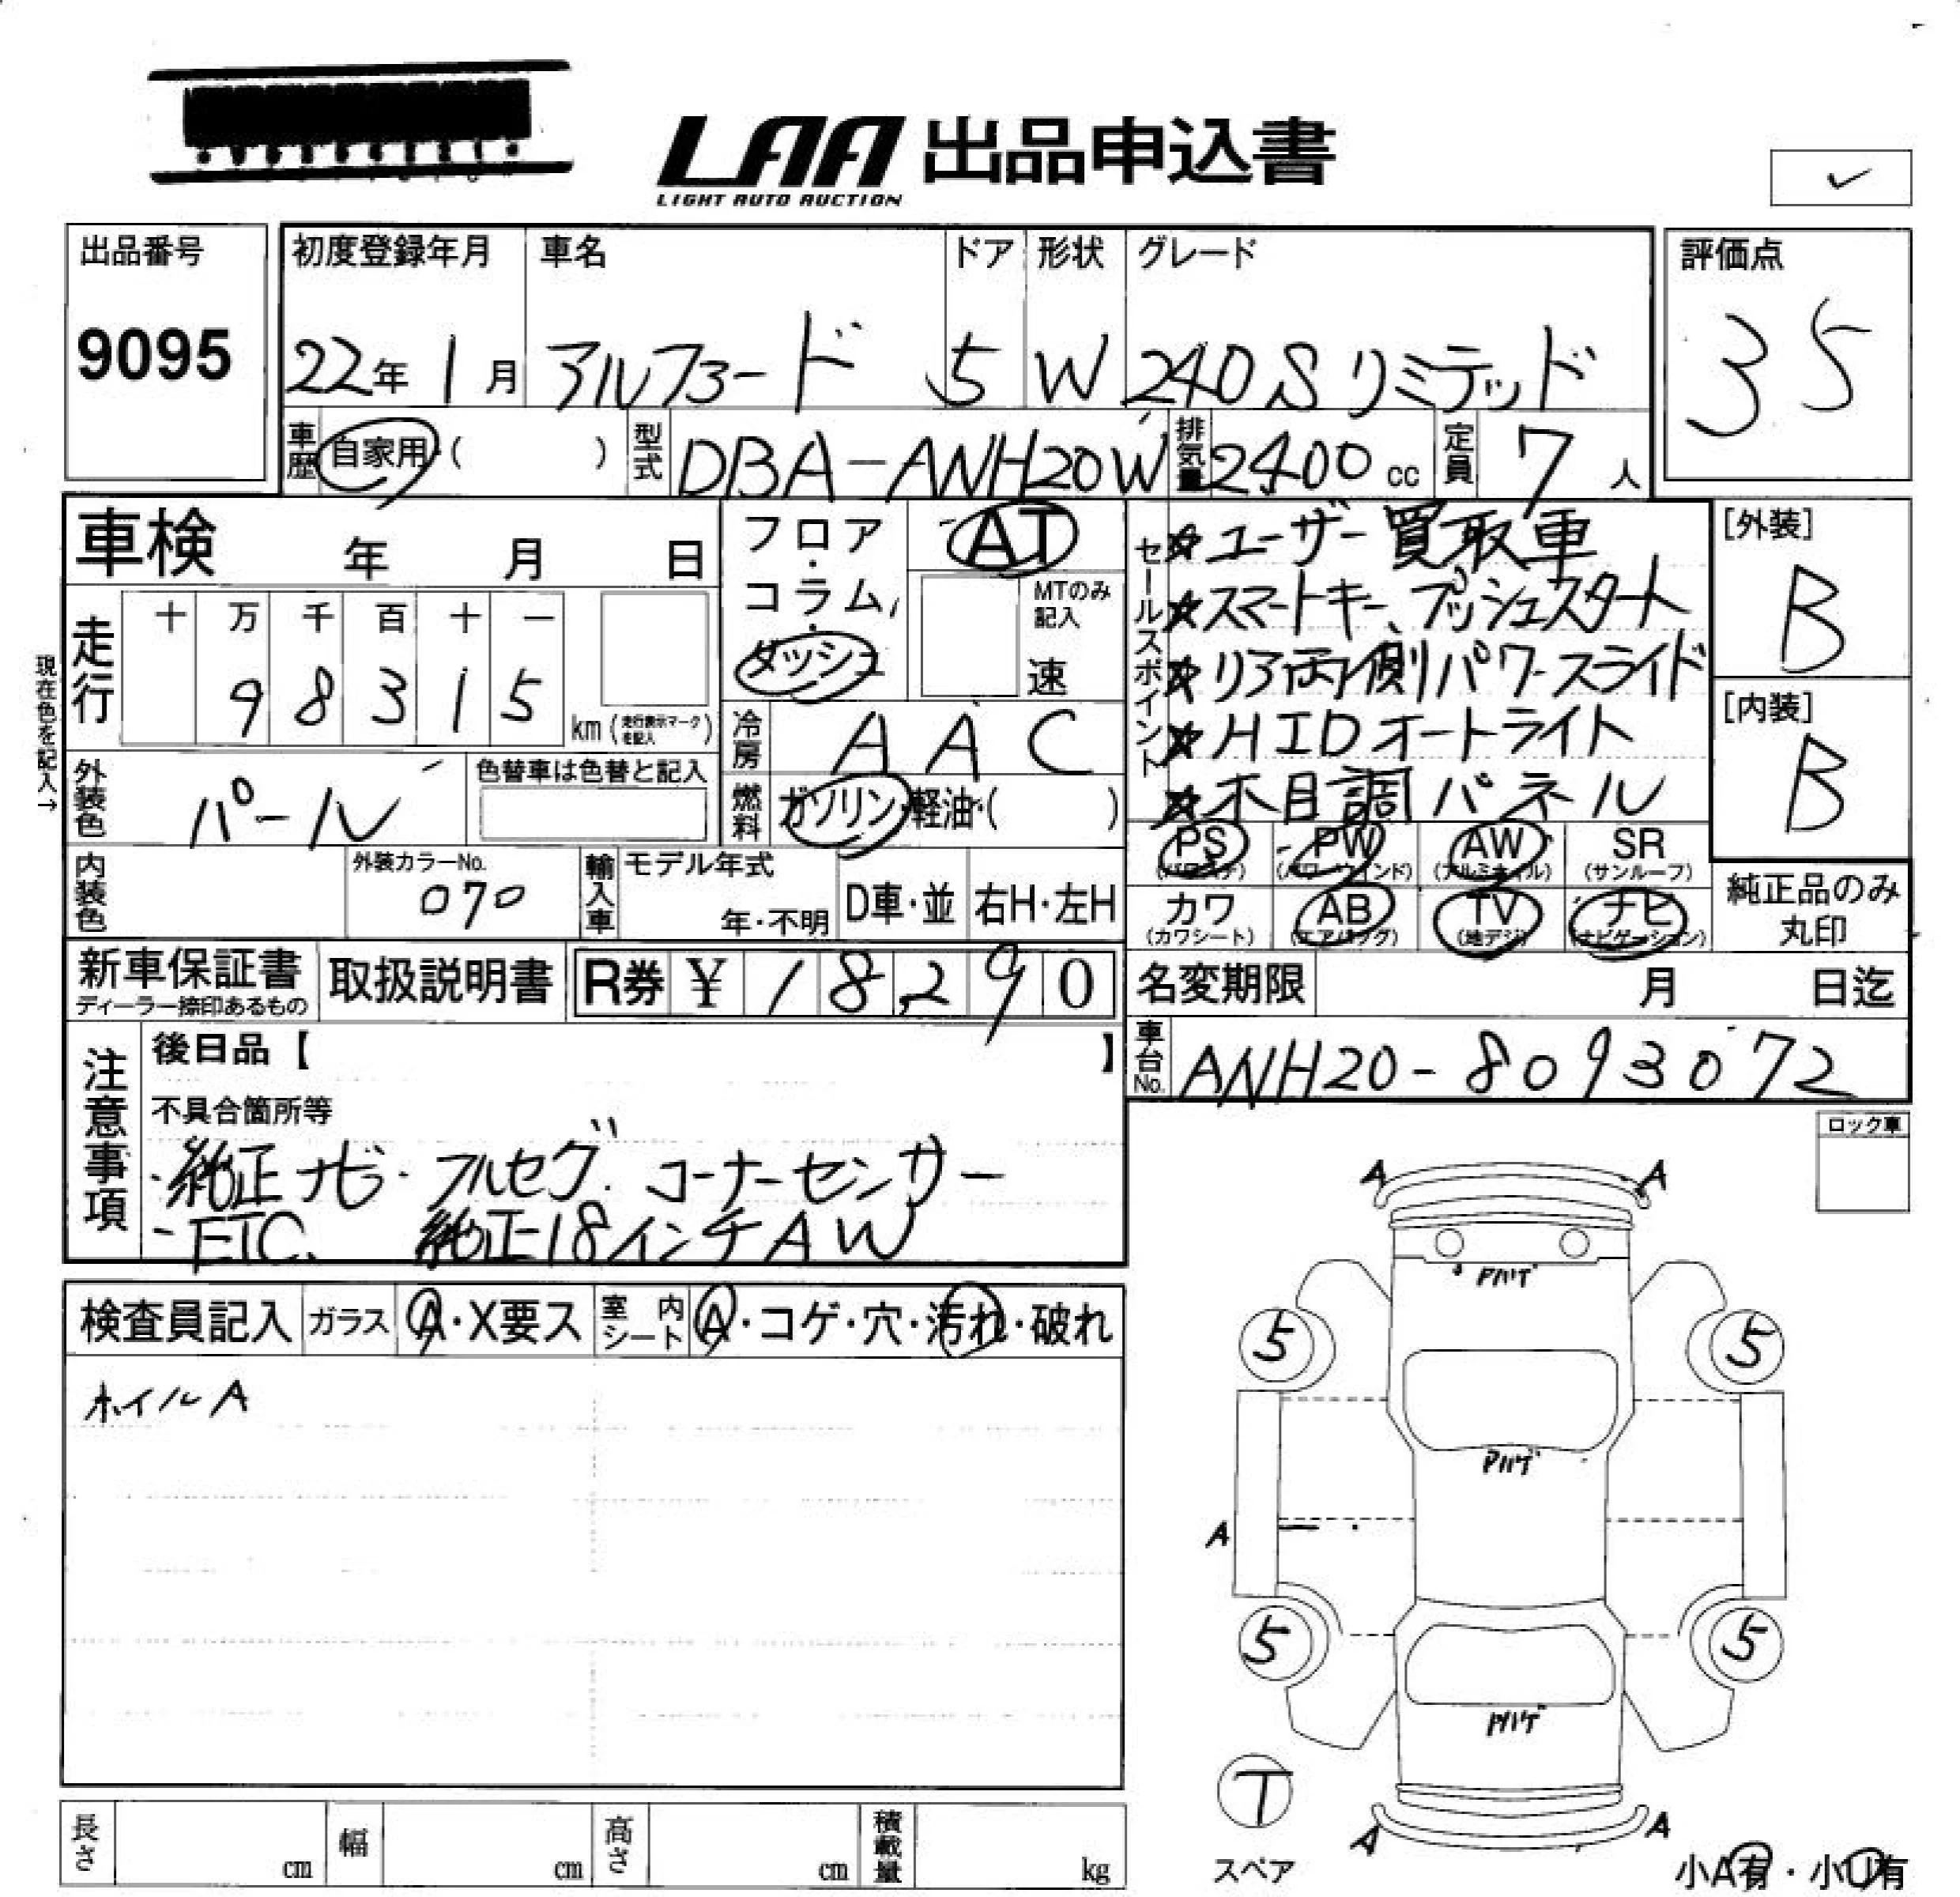 LAA 出品申込書
LIGHT AUTO AUCTION
✓
出品番号
9095
初度登録年月
22年 1月
車名
アルファード
ドア
5
形状
W
グレード
240Sリミテッド
評価点
35
車歴 自家用・( )
型式 DBA-ANH20W
排気量 2400 cc
定員 7 人
車検 年 月 日
フロア・コラム・ダッシュ
AT
MTのみ記入
速
セールスポイント
☆ユーザー買取車
☆スマートキー、プッシュスタート
☆リア両側パワースライド
☆HIDオートライト
☆木目調パネル
[外装]
B
[内装]
B
現在色を記入→
走行
十 万 千 百 十 一
9 8 3 1 5
km (走行表示マークを記入)
冷房 AAC
外装色 パール
色替車は色替と記入
燃料 ガソリン・軽油・( )
PS (パワステ) PW (パワーウインド) AW (アルミホイル) SR (サンルーフ)
カワ (カワシート) AB (エアバッグ) TV (地デジ) ナビ (ナビゲーション)
純正品のみ丸印
内装色
外装カラーNo.
070
輸入車
モデル年式
年・不明
D車・並
右H・左H
新車保証書
ディーラー捺印あるもの
取扱説明書
R券 ¥ 18,290
名変期限 月 日迄
車台No. ANH20-8093072
注意事項
後日品【 】
不具合箇所等
・純正ナビ・フルセグ. コーナーセンサー
・ETC. 純正18インチAW
ロック車
検査員記入 ガラス A・X要ス 室内シート A・コゲ・穴・汚れ・破れ
ホイルA
A A
Pハゲ
5 5
Pハゲ
A
5 5
Pハゲ
T
スペア
A A
小A有・小U有
長さ cm 幅 cm 高さ cm 積載量 kg